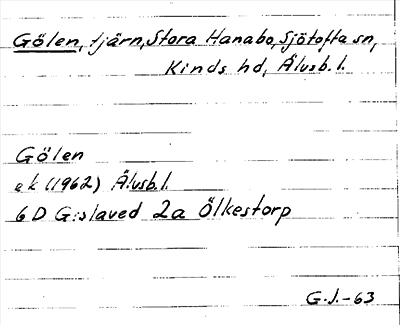 Gölen, tjärn, Stora Hanabo, Sjötofta sn,
Kinds hd, Älvsb. l.
Gölen
ek (1962) Älvsb. l.
6 D G:slaved 2a Ölkestorp
G.J.-63